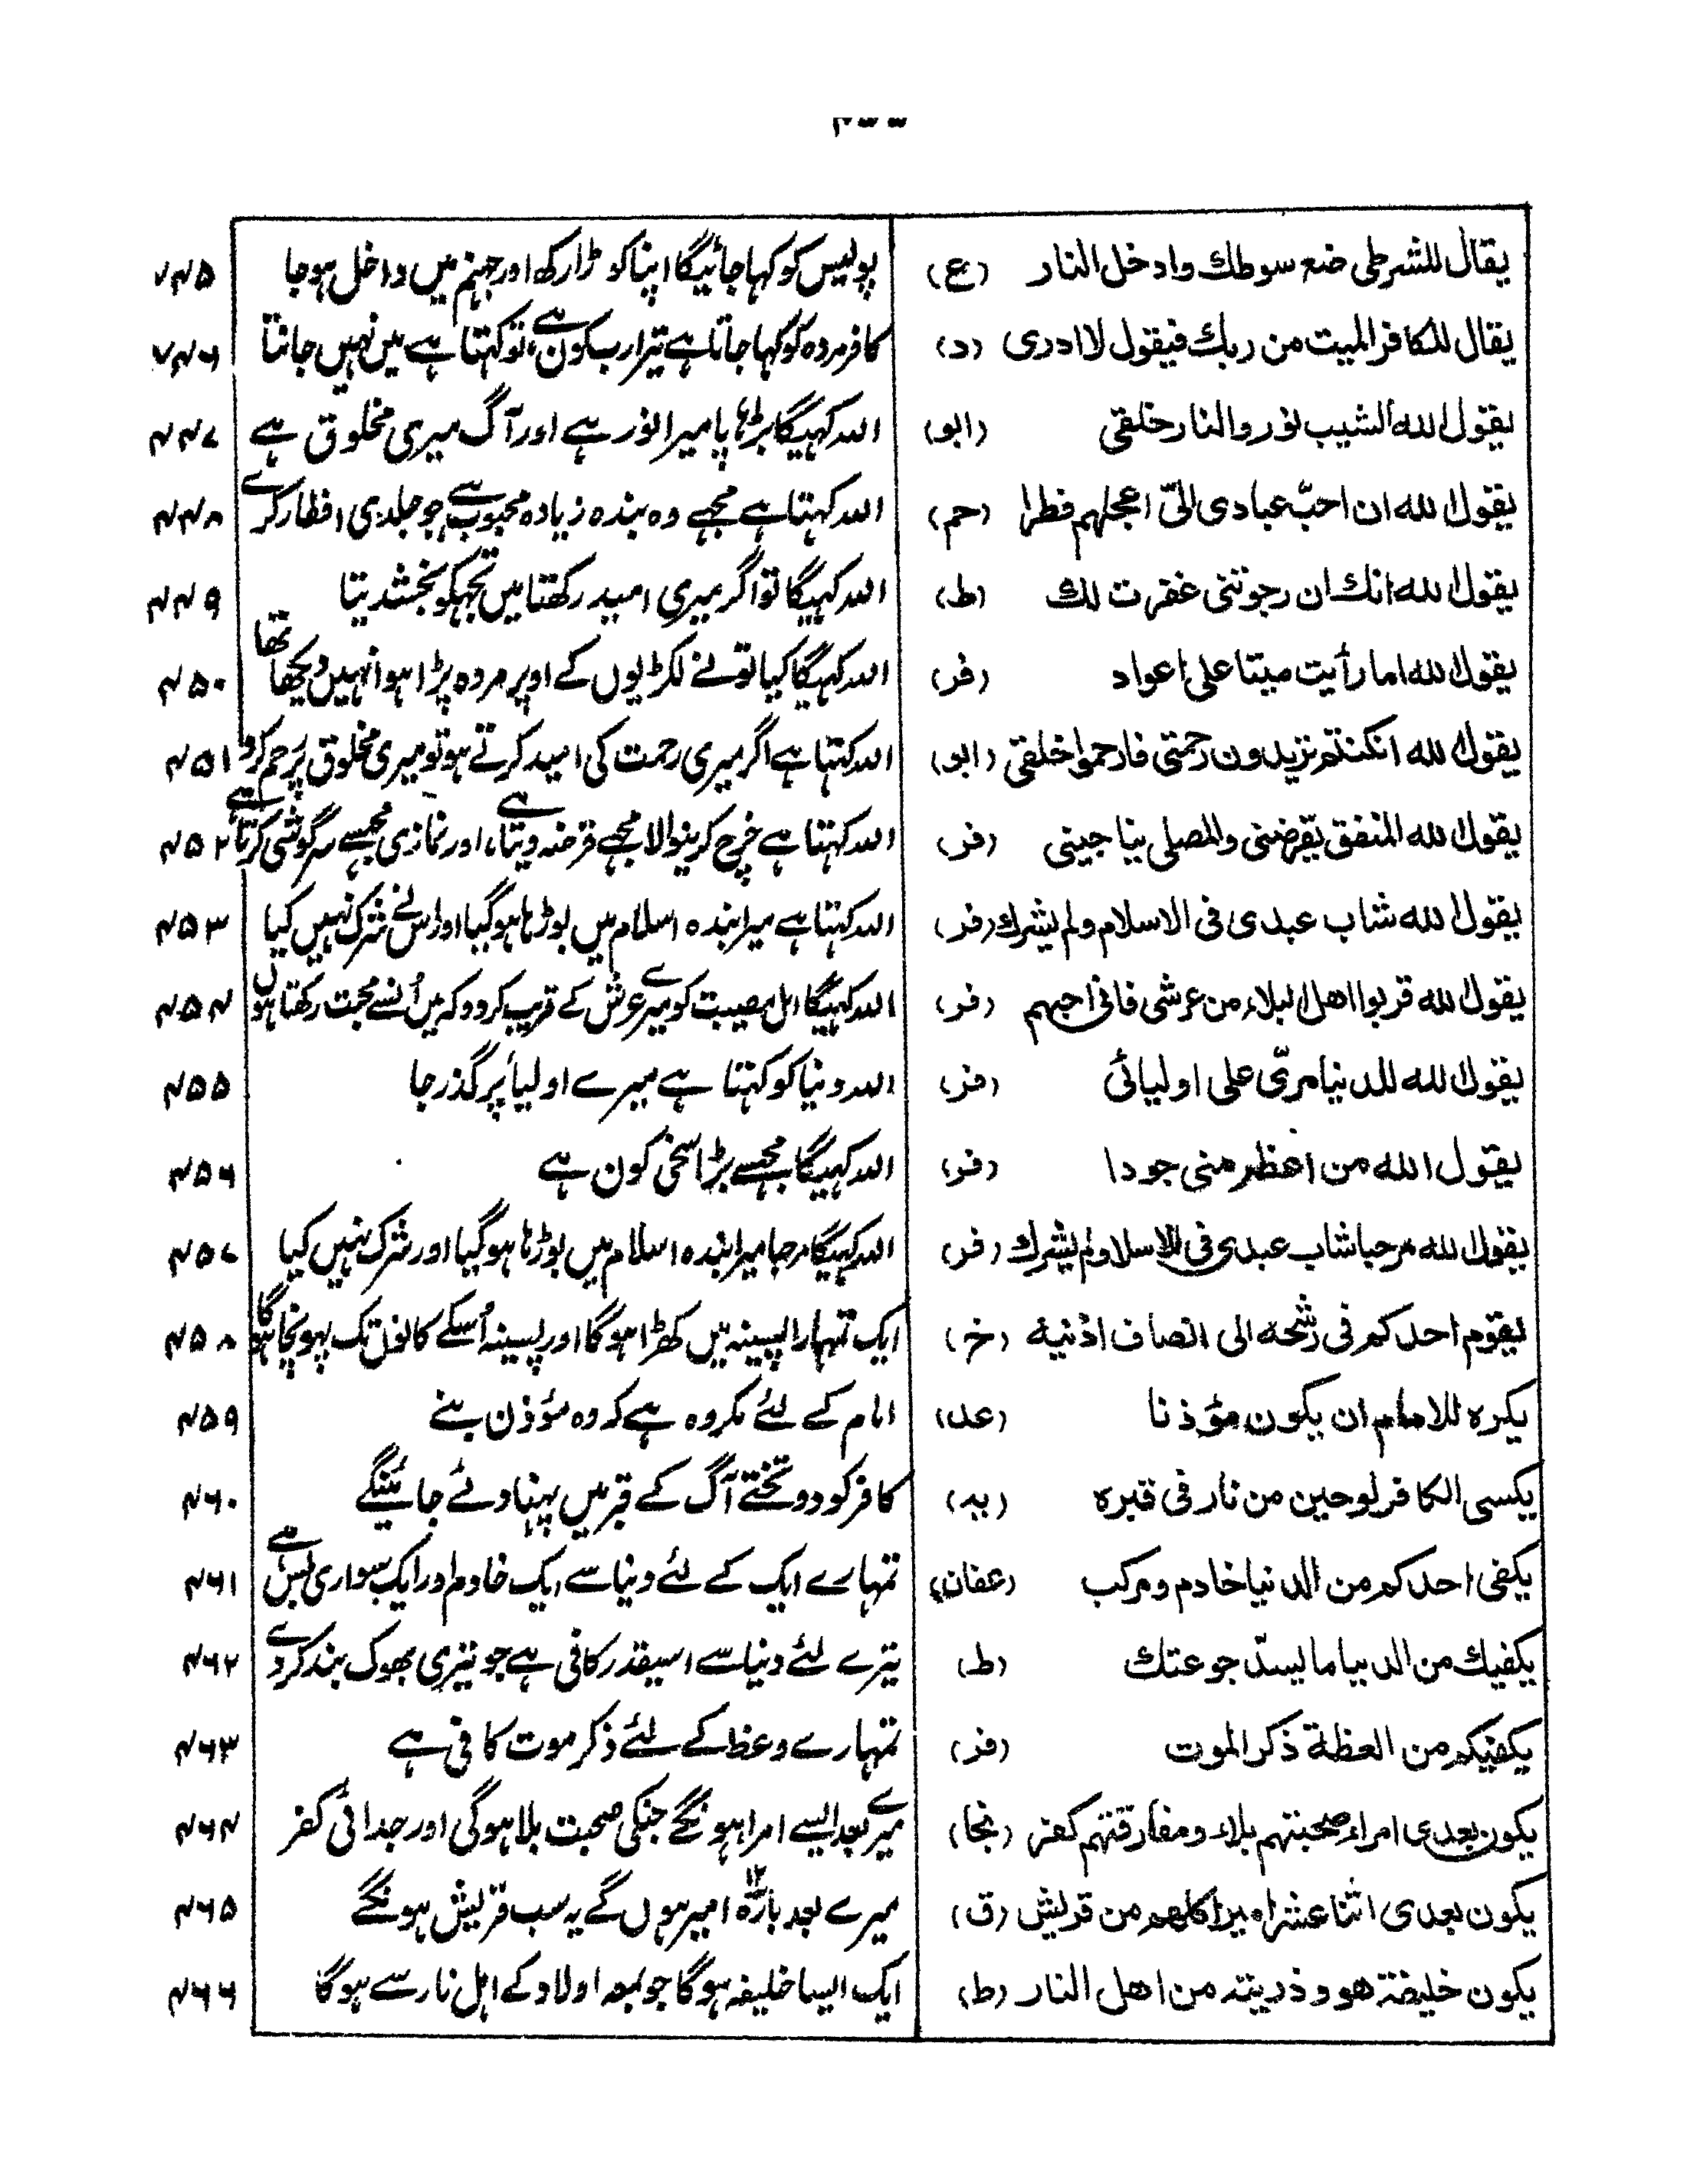 ۲۳۳
يقال للشرطی ضع سوطك وادخل النار (ع) پولیس کو کہا جائیگا اپنا کوڑا رکھ اور جہنم میں داخل ہو جا ۷۴۵
يقال للکافر المیت من ربك فيقول لا ادری (د) کافر مردہ کو کہا جاتا ہے تیرا رب کون ہے، تو کہتا ہے میں نہیں جانتا ۷۴۶
يقول الله الشیب نور والنار خلقی (ابو) اللہ کہیگا بڑہاپا میرا نور ہے اور آگ میری مخلوق ہے ۴۴۷
يقول الله ان احبّ عبادی الیّ اعجلهم فطرا (حم) اللہ کہتا ہے مجہے وہ بندہ زیادہ محبوب ہے جو جلدی افطار کرے ۴۴۸
يقول الله انك ان رجوتنی غفرت لك (ط) اللہ کہیگا تو اگر میری امید رکھتا میں تجہکو بخشدیتا ۴۴۹
يقول الله اما رأیت میتا علی اعواد (فر) اللہ کہیگا کیا تو نے لکڑیوں کے اوپر مردہ پڑا ہوا نہیں دیکھا تھا ۴۵۰
يقول الله ان کنتم تریدون رحمتی فارحموا خلقی (ابو) اللہ کہتا ہے اگر میری رحمت کی امید کرتے ہو تو میری مخلوق پر رحم کرو ۴۵۱
يقول الله المنفق یقرضنی والمصلی یناجینی (فر) اللہ کہتا ہے خرچ کرینوالا مجہے قرضہ دیتا ہے، اور نمازی مجہسے سرگوشی کرتا ہے ۴۵۲
يقول الله شاب عبدی فی الاسلام ولم یشرك (فر) اللہ کہتا ہے میرا بندہ اسلام میں بوڑہا ہو گیا اور اس نے شرک نہیں کیا ۴۵۳
يقول الله قربوا اهل البلاء من عرشی فانی احبهم (فر) اللہ کہیگا اہل مصیبت کو میرے عرش کے قریب کر دو کہ میں اُنسے محبت رکھتا ہوں ۴۵۴
يقول الله للدنیا مرّی علی اولیائی (فر) اللہ دنیا کو کہتا ہے میرے اولیأ پر گذر جا ۴۵۵
يقول الله من اعظم منی جودا (فر) اللہ کہیگا مجہسے بڑا سخی کون ہے ۴۵۶
يقول الله مرحبا شاب عبدی فی الاسلا ولم یشرك (فر) اللہ کہیگا مرحبا میرا بندہ اسلام میں بوڑہا ہو گیا اور شرک نہیں کیا ۴۵۷
يقوم احدکم فی رشحه الی انصاف اذنیه (خ) ایک تمہارا پسینہ میں کھڑا ہوگا اور پسینہ اُسکے کانوں تک پہونچا ہوگا ۴۵۸
یکره للامام ان یکون مؤذنا (عد) امام کے لئے مکروہ ہے کہ وہ مؤذن بنے ۴۵۹
یکسی الکافر لوحین من نار فی قبره (ید) کافر کو دو تختے آگ کے قبر میں پہنا دئے جائینگے ۴۶۰
یکفی احدکم من الدنیا خادم ومرکب (عفان) تمہارے ایک کے لئے دنیا سے ایک خادم اور ایک سواری بس ہے ۴۶۱
یکفیك من الدنیا ما یسدّ جوعتك (ط) تیرے لئے دنیا سے اسیقدر کافی ہے جو تیری بھوک بند کردے ۴۶۲
یکفیکم من العظة ذکر الموت (فر) تمہارے وعظ کے لئے ذکر موت کافی ہے ۴۶۳
یکون بعدی امراء صحبتهم بلاء ومفارقتهم کفر (نجا) میرے بعد ایسے امرا ہونگے جنکی صحبت بلا ہوگی اور جدائی کفر ۴۶۴
یکون بعدی اثنا عشر امیرا کلهم من قریش (ق) میرے بعد بارہ ۱۲ امیر ہوں گے یہ سب قریش ہونگے ۴۶۵
یکون خلیفة هو وذریته من اهل النار (ط) ایک ایسا خلیفہ ہوگا جو بمعہ اولاد کے اہل نار سے ہوگا ۴۶۶